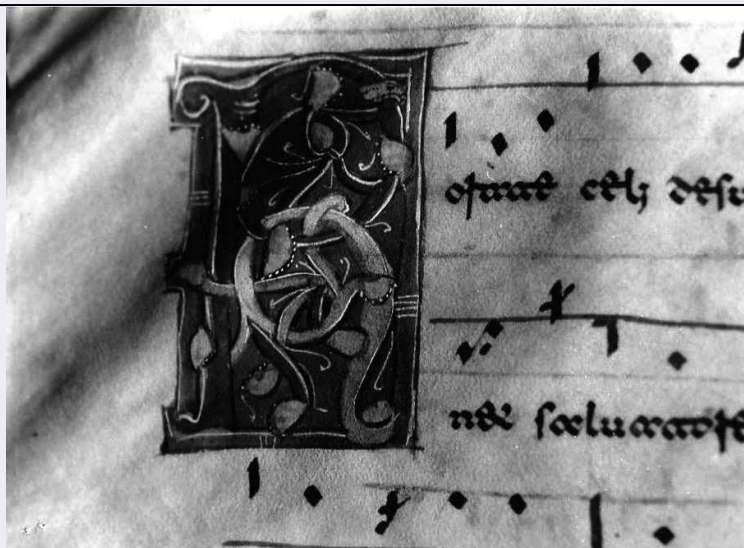 Rorate celi desu
net saluatore